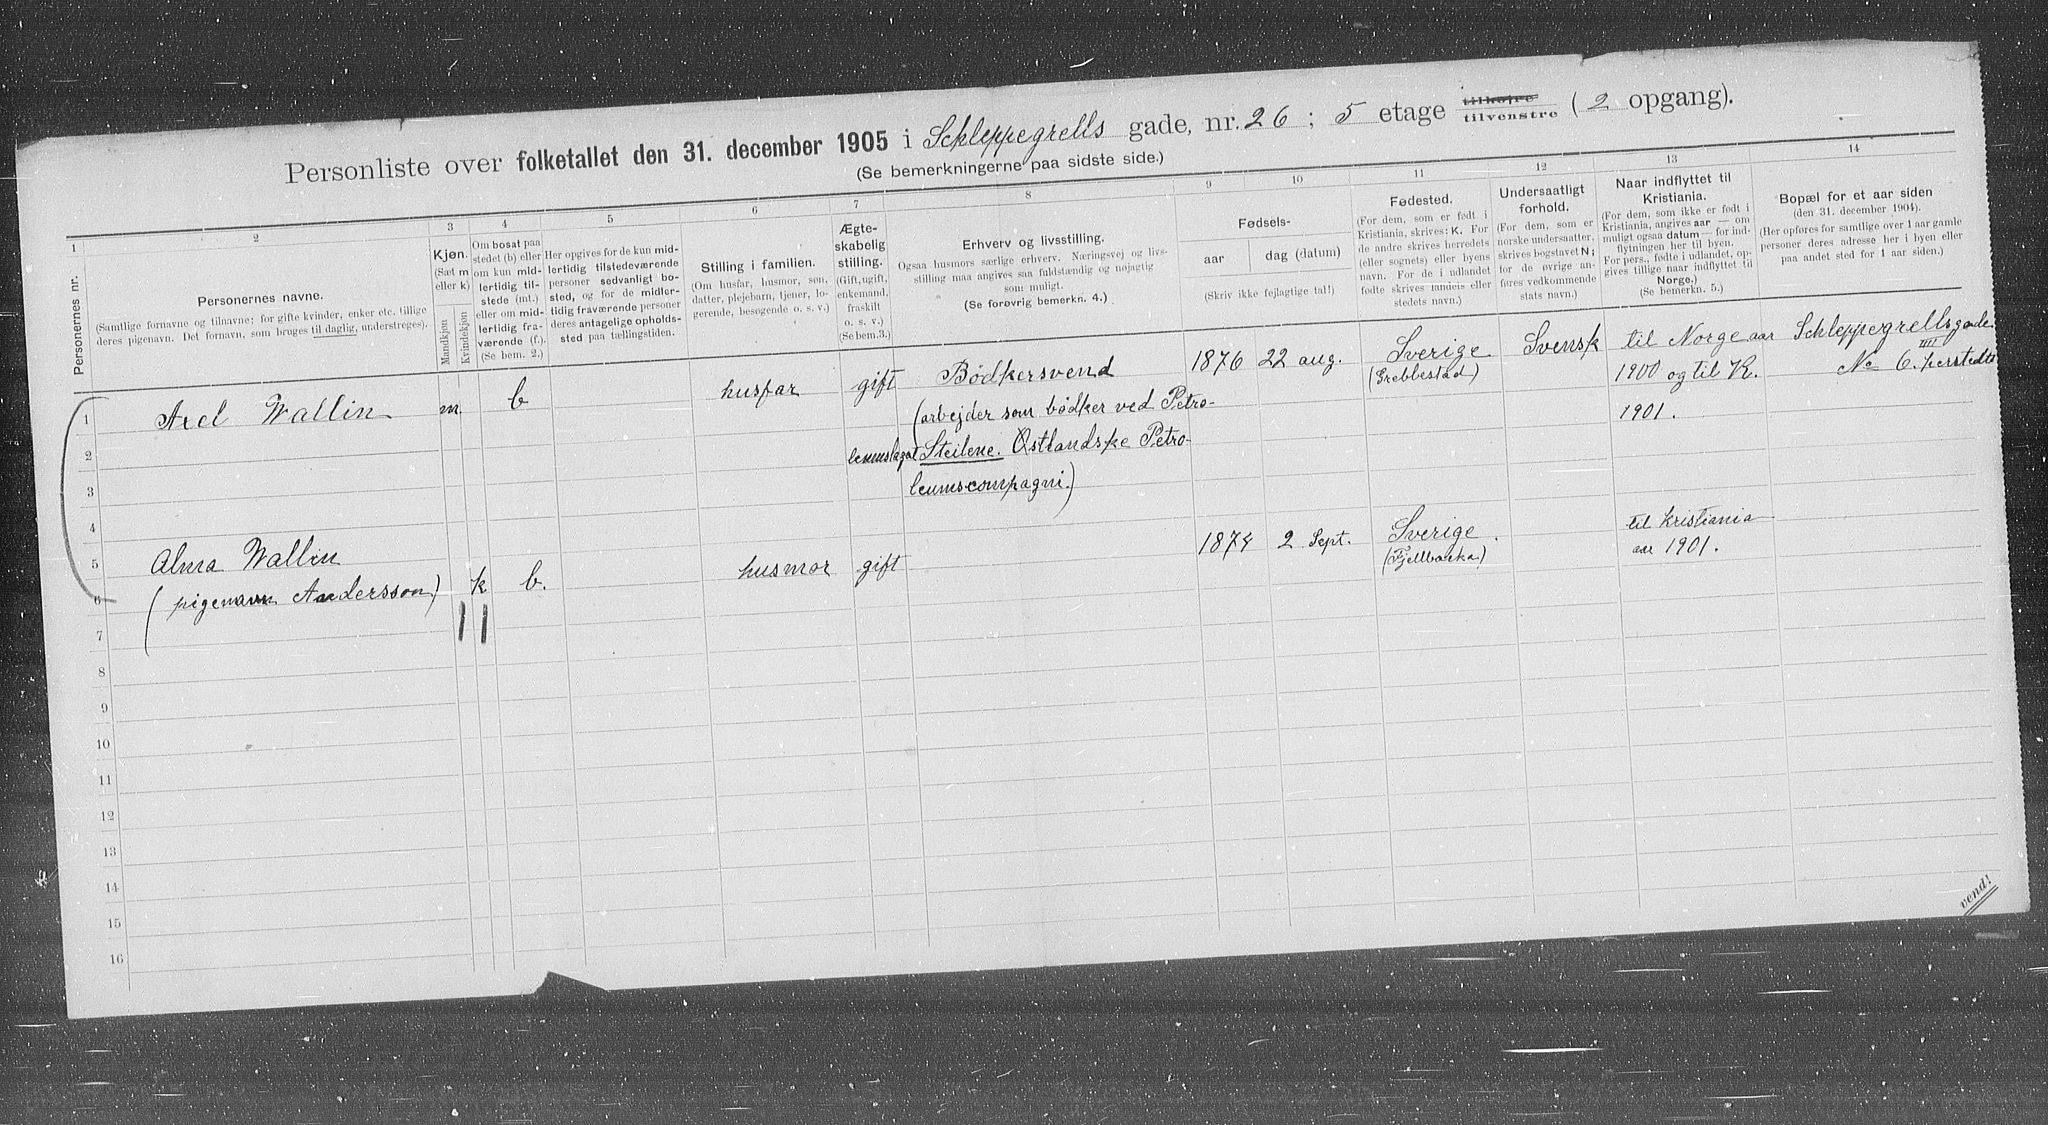 Personliste over folketallet den 31. december 1905 i Schleppegrells gade, nr. 26 ; 5 etage tilhøjre tilvenstre ( 2 opgang).
(Se bemerkningerne paa sidste side.)
1
Personernes nr.
2
Personernes navne.
(Samtlige fornavne og tilnavne; for gifte kvinder, enker etc. tillige
deres pigenavn. Det fornavn, som bruges til daglig, understreges).
3
Kjøn.
(Sæt m
eller k)
Mandkjøn
Kvindekjøn
4
Om bosat paa
stedet (b) eller
om kun mid-
lertidig til-
stede (mt.)
eller om mid-
lertidig fra-
værende (f.).
(Se bem. 2.)
5
Her opgives for de kun mid-
lertidig tilstedeværende
personer sedvanligt bo-
sted, og for de midler-
tidig fraværende personer
deres antagelige opholds-
sted paa tællingstiden.
6
Stilling i familien.
(Om husfar, husmor, søn,
datter, plejebarn, tjener, lo-
gerende, besøgende o. s. v.)
7
Ægte-
skabelig
stilling.
(Gift, ugift,
enkemand,
fraskilt
o. s. v.)
(Se bem.3.)
8
Erhverv og livsstilling.
Ogsaa husmors særlige erhverv. Næringsvej og livs-
stilling maa angives saa fuldstændig og nøjagtig
som muligt.
(Se forøvrig bemerkn. 4.)
9
10
Fødsels-
aar
dag (datum)
(Skriv ikke fejlagtige tal!)
11
Fødested.
(For dem, som er født i
Kristiania, skrives: K. For
de andre skrives herredets
(eller sognets) eller byens
navn. For de i udlandet
fødte skrives landets eller
stedets navn.)
12
Undersaatligt
forhold.
(For dem, som er
norske undersaatter,
skrives bogstavet N;
for de øvrige an-
føres vedkommende
stats navn.)
13
Naar indflyttet til
Kristiania.
(For dem, som ikke er født i
Kristiania, angives aar — om
muligt ogsaa datum — for ind-
flytningen her til byen.
For pers., fødte i udlandet, op-
gives tillige naar indflyttet til
Norge.)
(Se bemerkn. 5.)
14
Bopæl for et aar siden
(den 31. december 1904).
(Her opføres for samtlige over 1 aar gamle
personer deres adresse her i byen eller
paa andet sted for 1 aar siden.)
1
Axel Wallin
m.
b
husfar
gift
Bødkersvend
(arbejder som bødker ved Petro-
leumslaget Steilene. Østlandske Petro-
leumscompagni.)
1876
22 aug.
Sverige
(Grebbestad)
Svensk
til Norge aar
1900 og til K.
1901.
Schleppegrellsgade
No 6. IIII
2
3
4
5
Alma Wallin
(pigenavn Andersson)
k
b.
husmor
gift
1874
2 Sept.
Sverige.
(Fjellbacka)
til Kristiania
aar 1901.
6
7
8
9
10
11
12
13
14
15
16
vend!